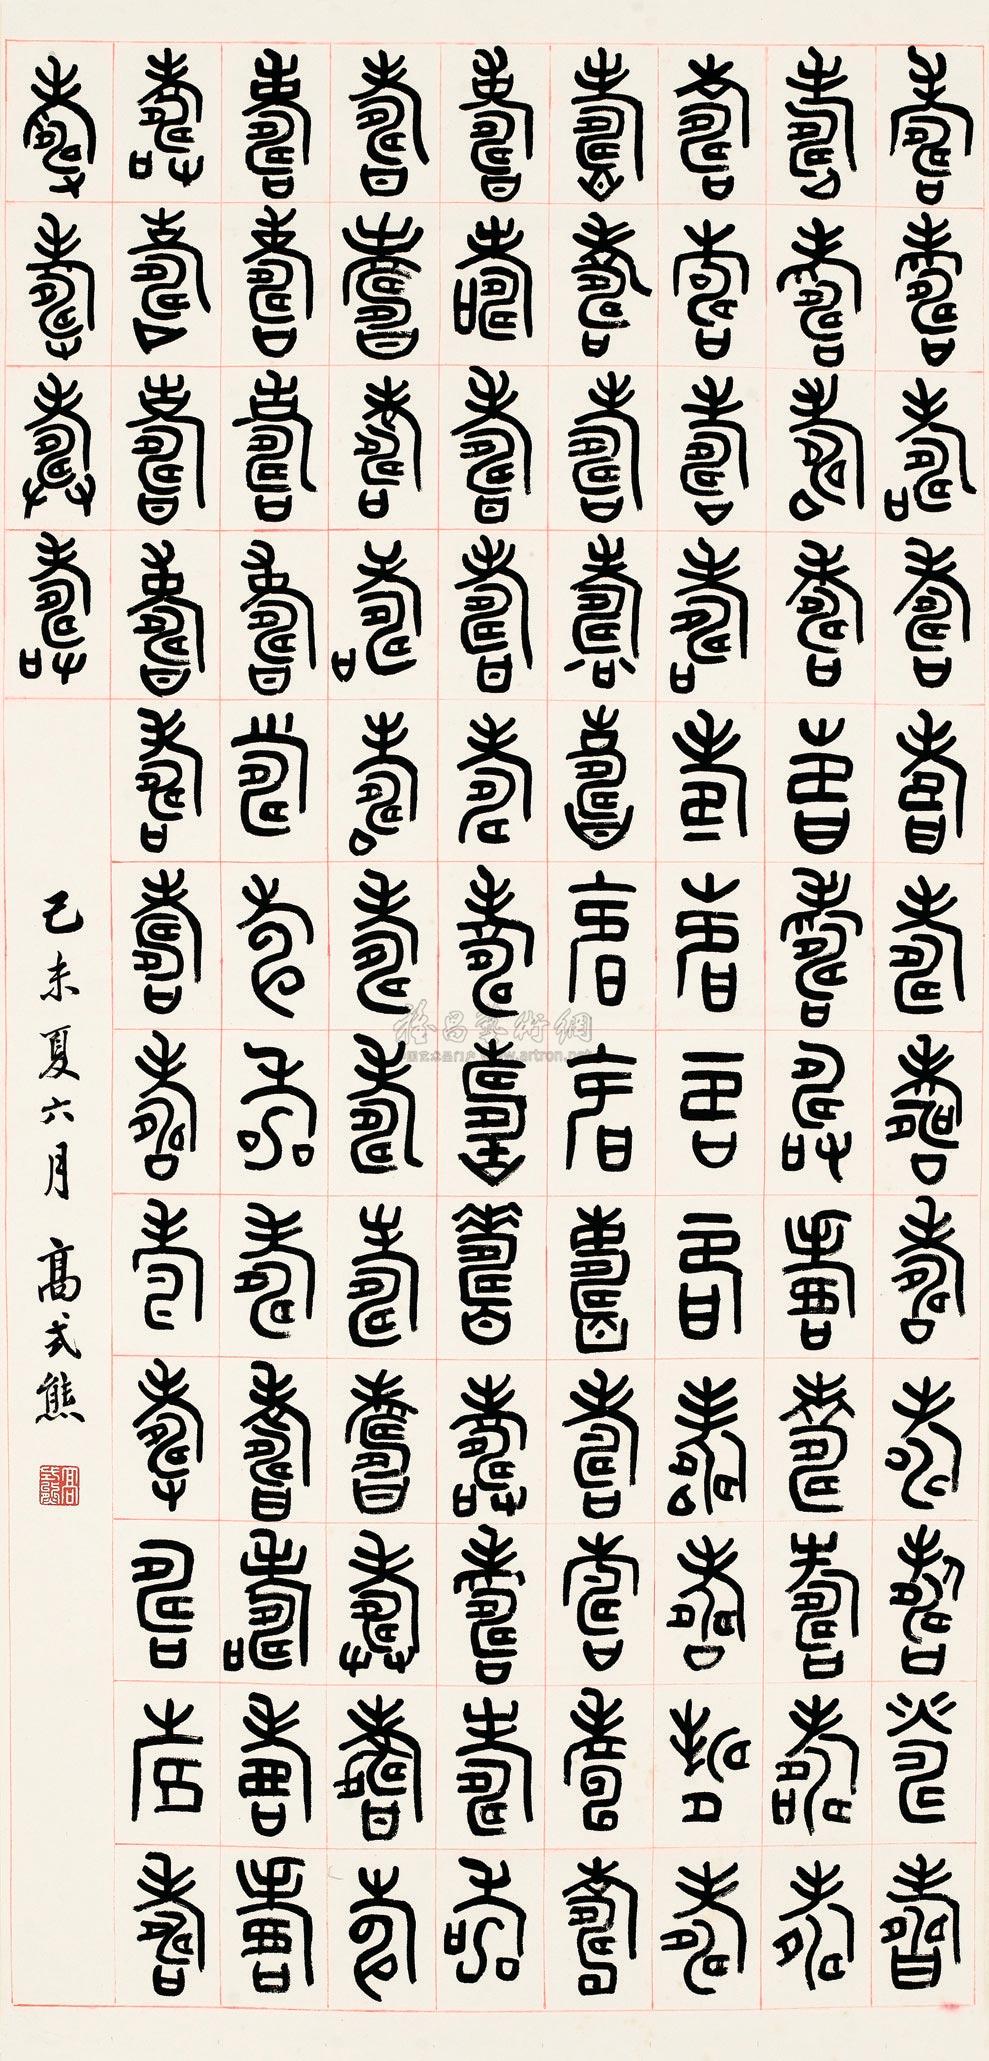 壽壽壽壽壽壽壽壽壽壽壽壽
壽壽壽壽壽壽壽壽壽壽壽壽
壽壽壽壽壽壽壽壽壽壽壽壽
壽壽壽壽壽壽壽壽壽壽壽壽
壽壽壽壽壽壽壽壽壽壽壽壽
壽壽壽壽壽壽壽壽壽壽壽壽
壽壽壽壽壽壽壽壽壽壽壽壽
壽壽壽壽壽壽壽壽壽壽壽壽
壽壽壽壽
己未夏六月 高式熊
雅昌藝術網
www.artron.net